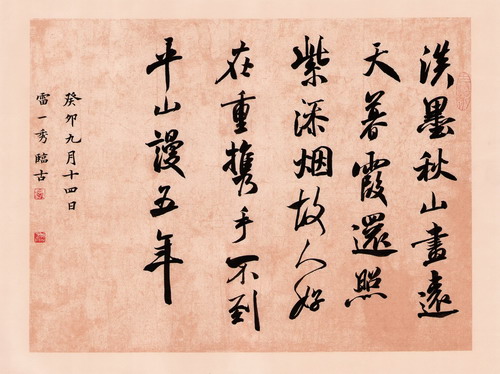 淡墨秋山畫遠
天暮霞還照
紫添烟故人好
在重携手不到
平山謾五年
癸卯九月十四日
雷一秀臨古